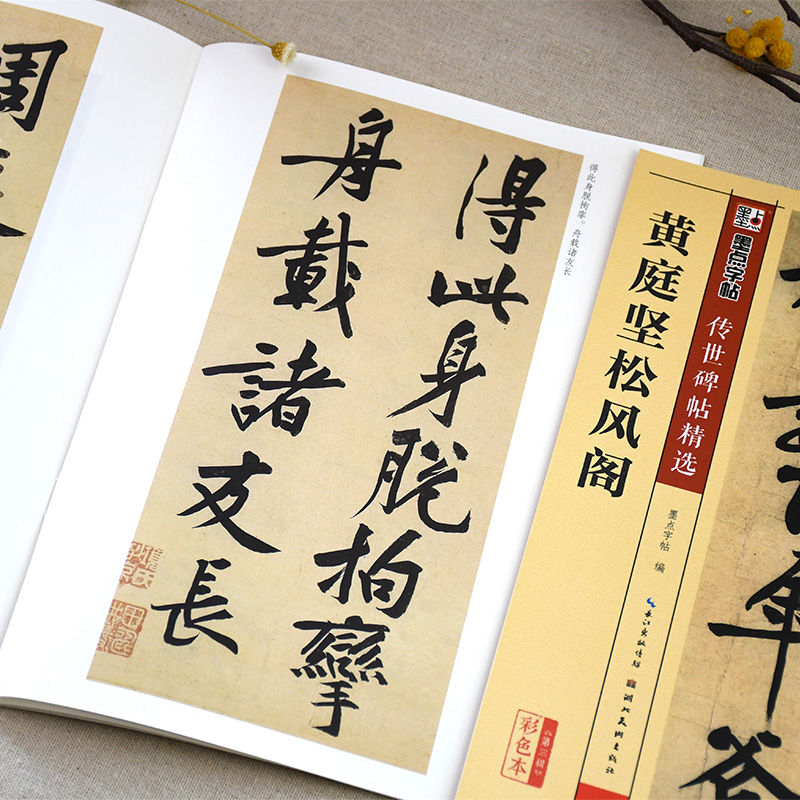 得此身脫拘攣
舟載諸友長
得此身脱拘挛。舟载诸友长
墨点
墨点字帖
传世碑帖精选
黄庭坚松风阁
墨点字帖 编
长江出版传媒
湖北美术出版社
彩色本
《第三辑》